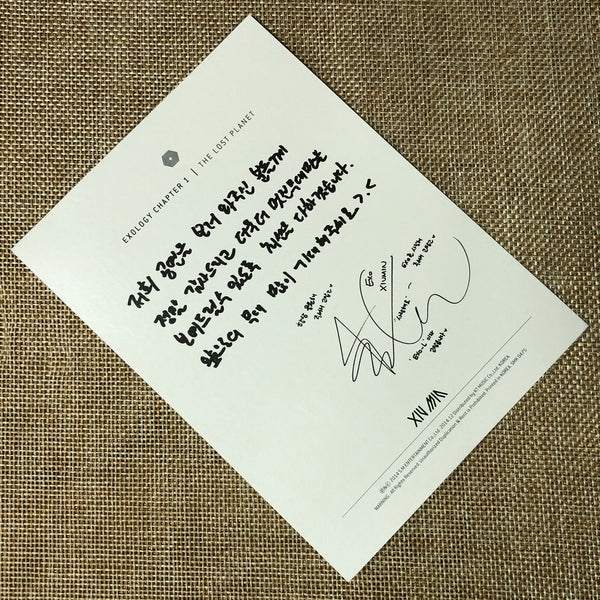 EXOLOGY CHAPTER 1 | THE LOST PLANET
저희 공연을 보러 와주신 분들께
정말 감사드리고 더욱더 멋진무대만을
보여드릴수 있도록 최선을 다하겠습니다.
앞으로의 무대 많이 기대해주세요 >.<
EXO
XIUMIN
XIUMIN
℗&© 2014 S.M.ENTERTAINMENT Co.,Ltd. 2014.12 Distributed by KT MUSIC Co.,Ltd. KOREA.
WARNING : All Rights Reserved. Unauthorized Duplication & Rent is Prohibited. Printed in KOREA.